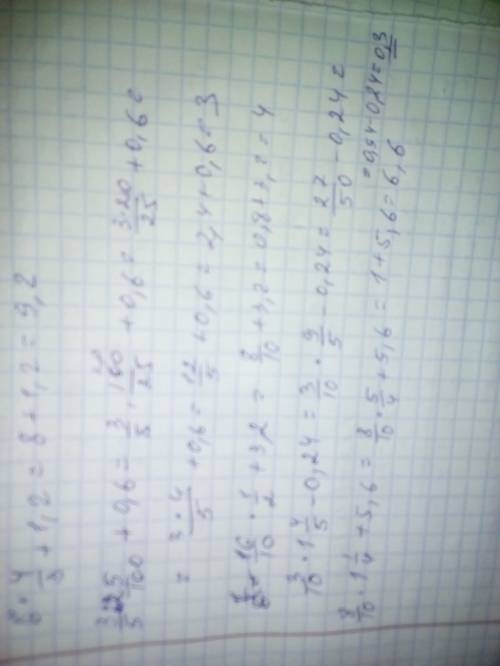 4/8 + 1,2 = 8 + 1,2 = 9,2
3/5 25/100 + 0,6 = 3/5 · 100/25 + 0,6 = 3·20/25 + 0,6 =
= 3·4/5 + 0,6 = 12/5 + 0,6 = 2,4 + 0,6 = 3
16/10 · 1/2 + 3,2 = 8/10 + 3,2 = 0,8 + 3,2 = 4
3/10 · 1 4/5 - 0,24 = 3/10 · 9/5 - 0,24 = 27/50 - 0,24 =
= 0,54 - 0,24 = 0,3
8/10 · 1 1/4 + 5,6 = 8/10 · 5/4 + 5,6 = 1 + 5,6 = 6,6